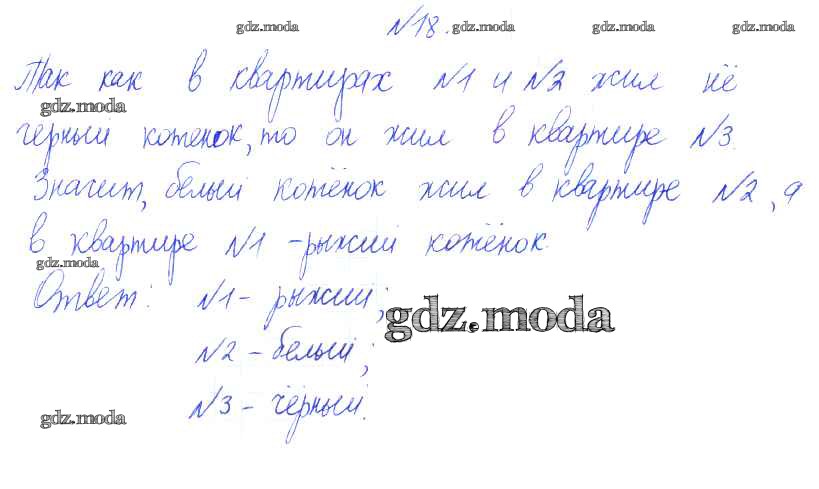 №18.
gdz.moda gdz.moda gdz.moda gdz.moda
Так как в квартирах №1 и №2 жил не
gdz.moda
чёрный котенок, то он жил в квартире №3.
Значит, белый котёнок жил в квартире №2, а
в квартире №1 - рыжий котёнок.
gdz.moda
Ответ: №1 - рыжий;
gdz.moda
№2 - белый;
№3 - чёрный.
gdz.moda gdz.moda